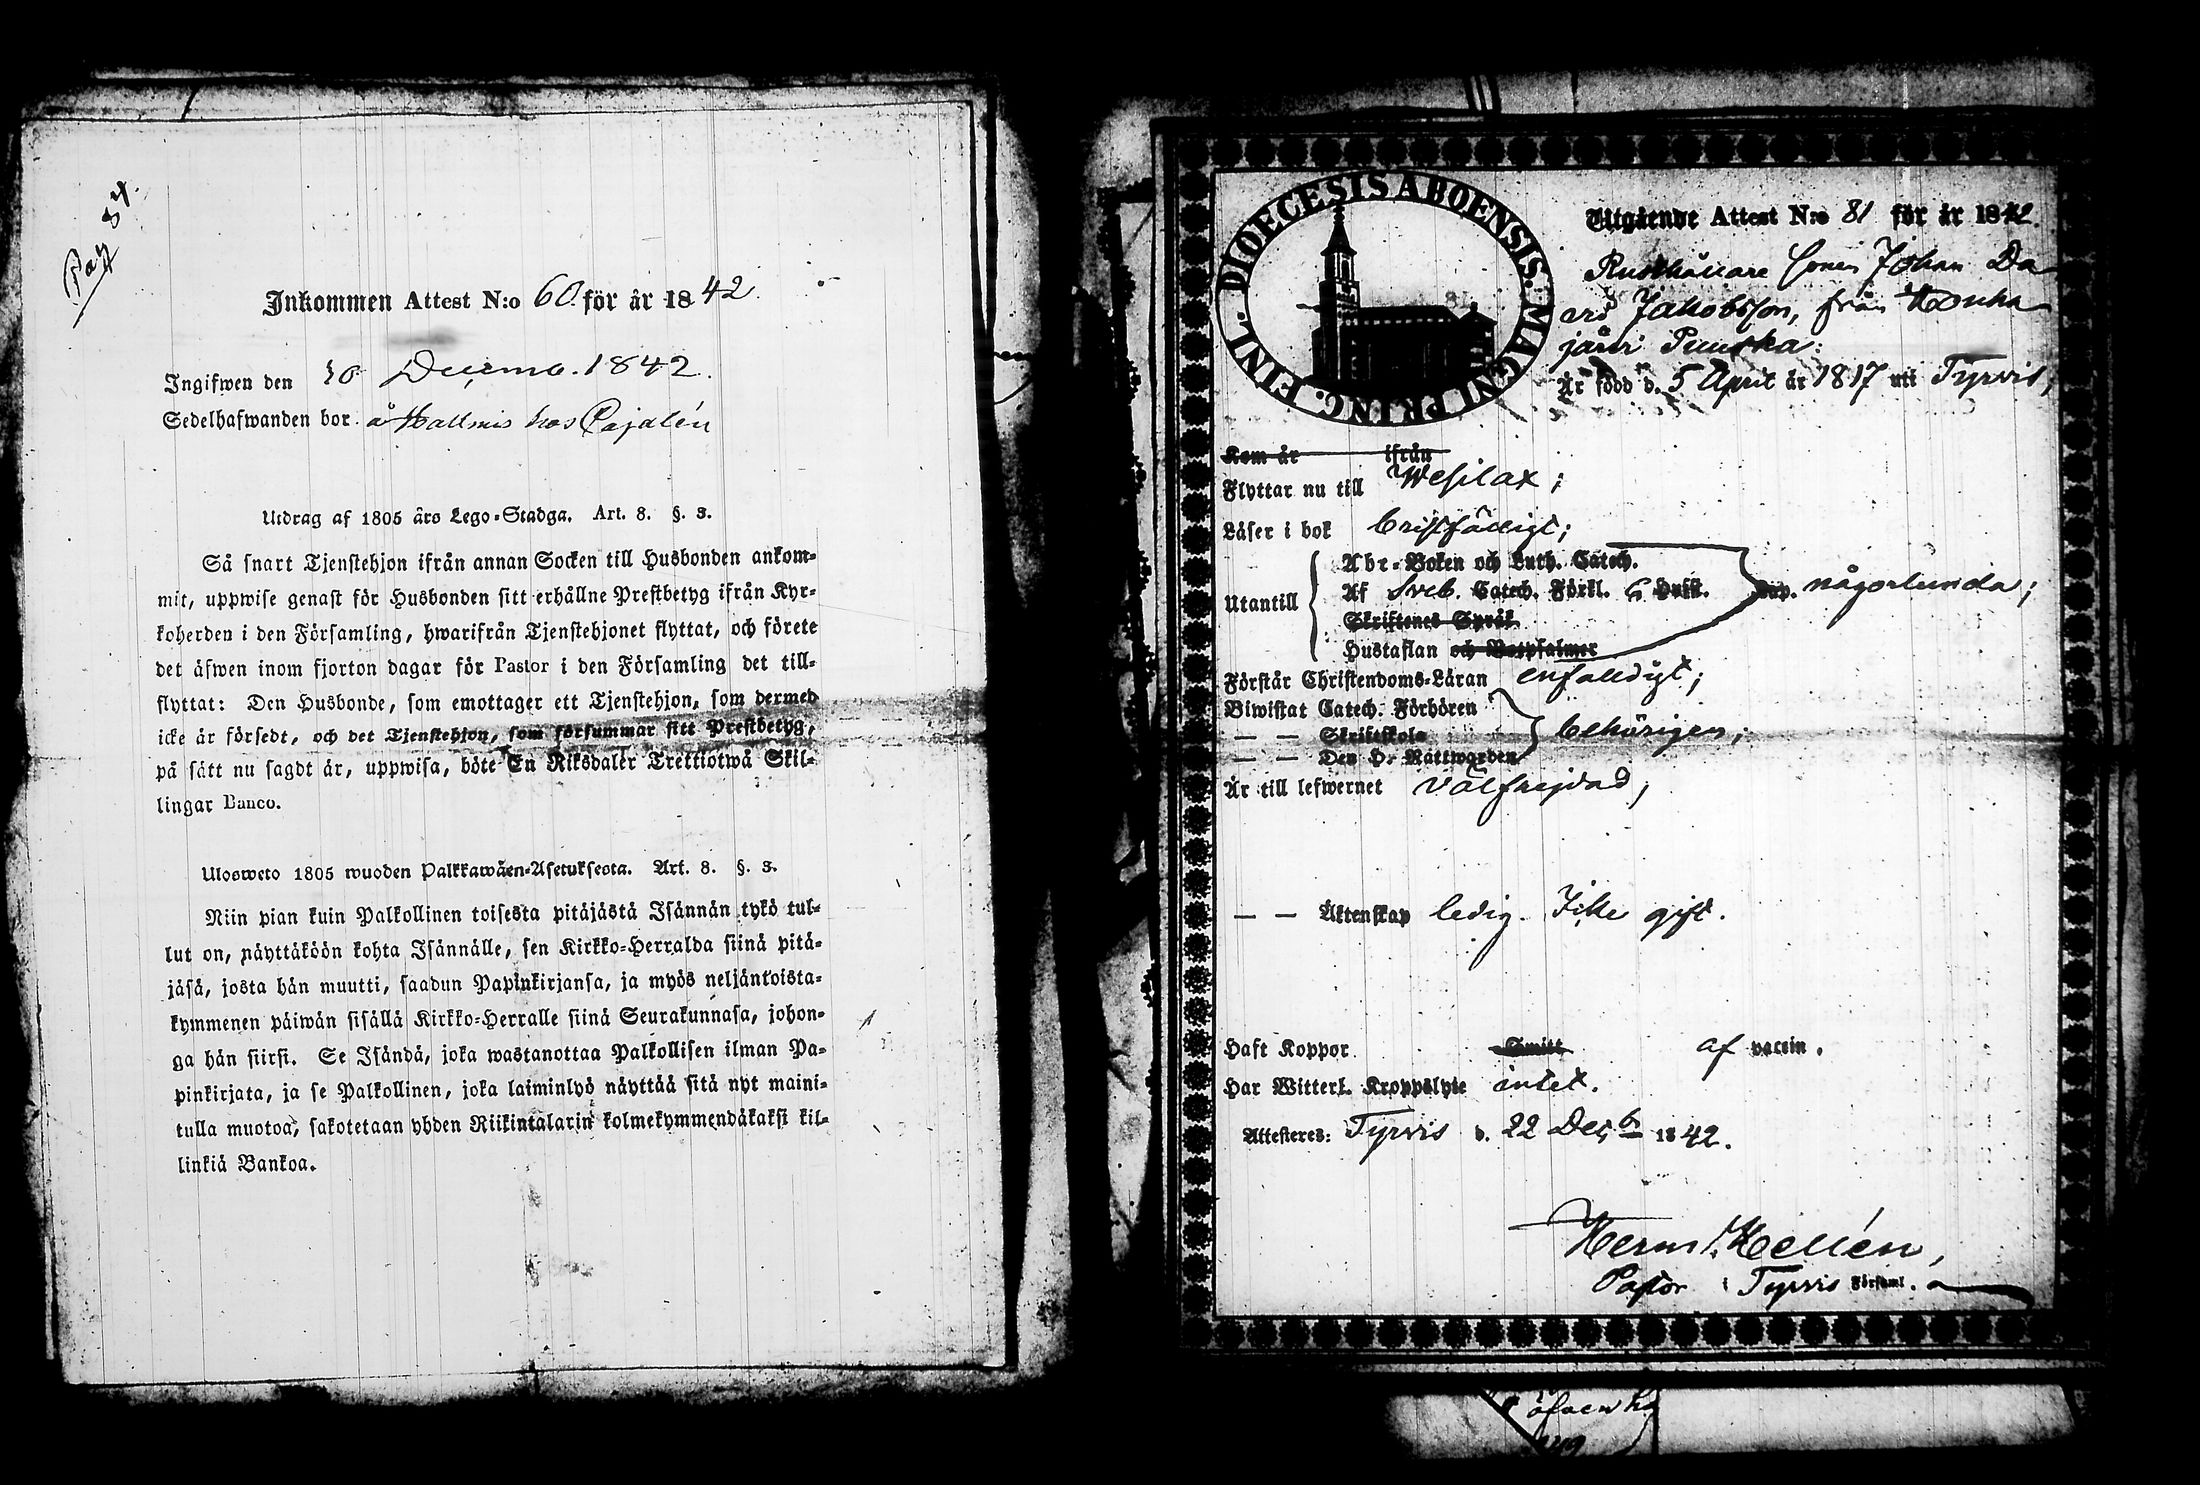 Pag 84.
Inkommen Attest N:o 60. för år 1842.
Ingifwen den 30 Decemb. 1842.
Sedelhafwanden bor å Hallmis hos Pajalén
Utdrag af 1805 års Lego-Stadga. Art. 8. §. 3.
Så snart Tjenstehjon ifrån annan Socken till Husbonden ankom-
mit, uppwise genast för Husbonden sitt erhållne Prestbetyg ifrån Kyr-
koherden i den Församling, hwarifrån Tjenstehjonet flyttat, och förete
det äfwen inom fjorton dagar för Pastor i den Församling det till-
flyttat: Den Husbonde, som emottager ett Tjenstehjon, som dermed
icke är försedt, och det Tjenstehjon, som försummar sitt Prestbetyg,
på sätt nu sagdt är, uppwisa, böte En Riksdaler Trettiotwå Skil-
lingar Banco.
Ulosweto 1805 wuoden Palkkawäen-Asetuksesta. Art. 8. §. 3.
Niin pian kuin Palkollinen toisesta pitäjästä Isännän tykö tul-
lut on, näyttäköön kohta Isännälle, sen Kirkko-Herralda siinä pitä-
jäsä, josta hän muutti, saadun Papinkirjansa, ja myös neljäntoista-
kymmenen päiwän sisällä Kirkko-Herralle siinä Seurakunnasa, johon-
ga hän siirsi. Se Isändä, joka wastanottaa Palkollisen ilman Pa-
pinkirjata, ja se Palkollinen, joka laiminlyö näyttää sitä nyt maini-
tulla muotoa, sakotetaan yhden Riikintalarin kolmekymmendäkaksi kil-
linkiä Bankoa.
DIOECESIS ABOENSIS. MAGNI PRINC. FINL.
Utgående Attest N:o 81 för år 1842.
Rusthållare Sonen Johan Da
vid Jakobsson, från Houha
järvi Puuska.
Är född d. 5 April år 1817 uti Tyrvis,
Kom år ifrån
Flyttar nu till Wesilax;
Läser i bok bristfälligt;
Utantill
Abc-Boken och Luth. Catech.
Af Sveb. Catech. Förkl. Hufst. någorlunda;
Skriftenes Språk
Hustaflan och Botpsalmer
Förstår Christendoms-Läran enfaldigt;
Biwistat Catech. Förhören
— — Skriftskola behörigen;
— — Den H. Nattwarden
Är till lefwernet välfrejdad;
— — Äktenskap ledig. Icke gift.
Haft Koppor Smitt af vaccin.
Har Witterl. Kroppslyte intet.
Attesteres: Tyrvis d. 22 Decb 1842.
Herm. Hellén,
Pastor i Tyrvis Församl.